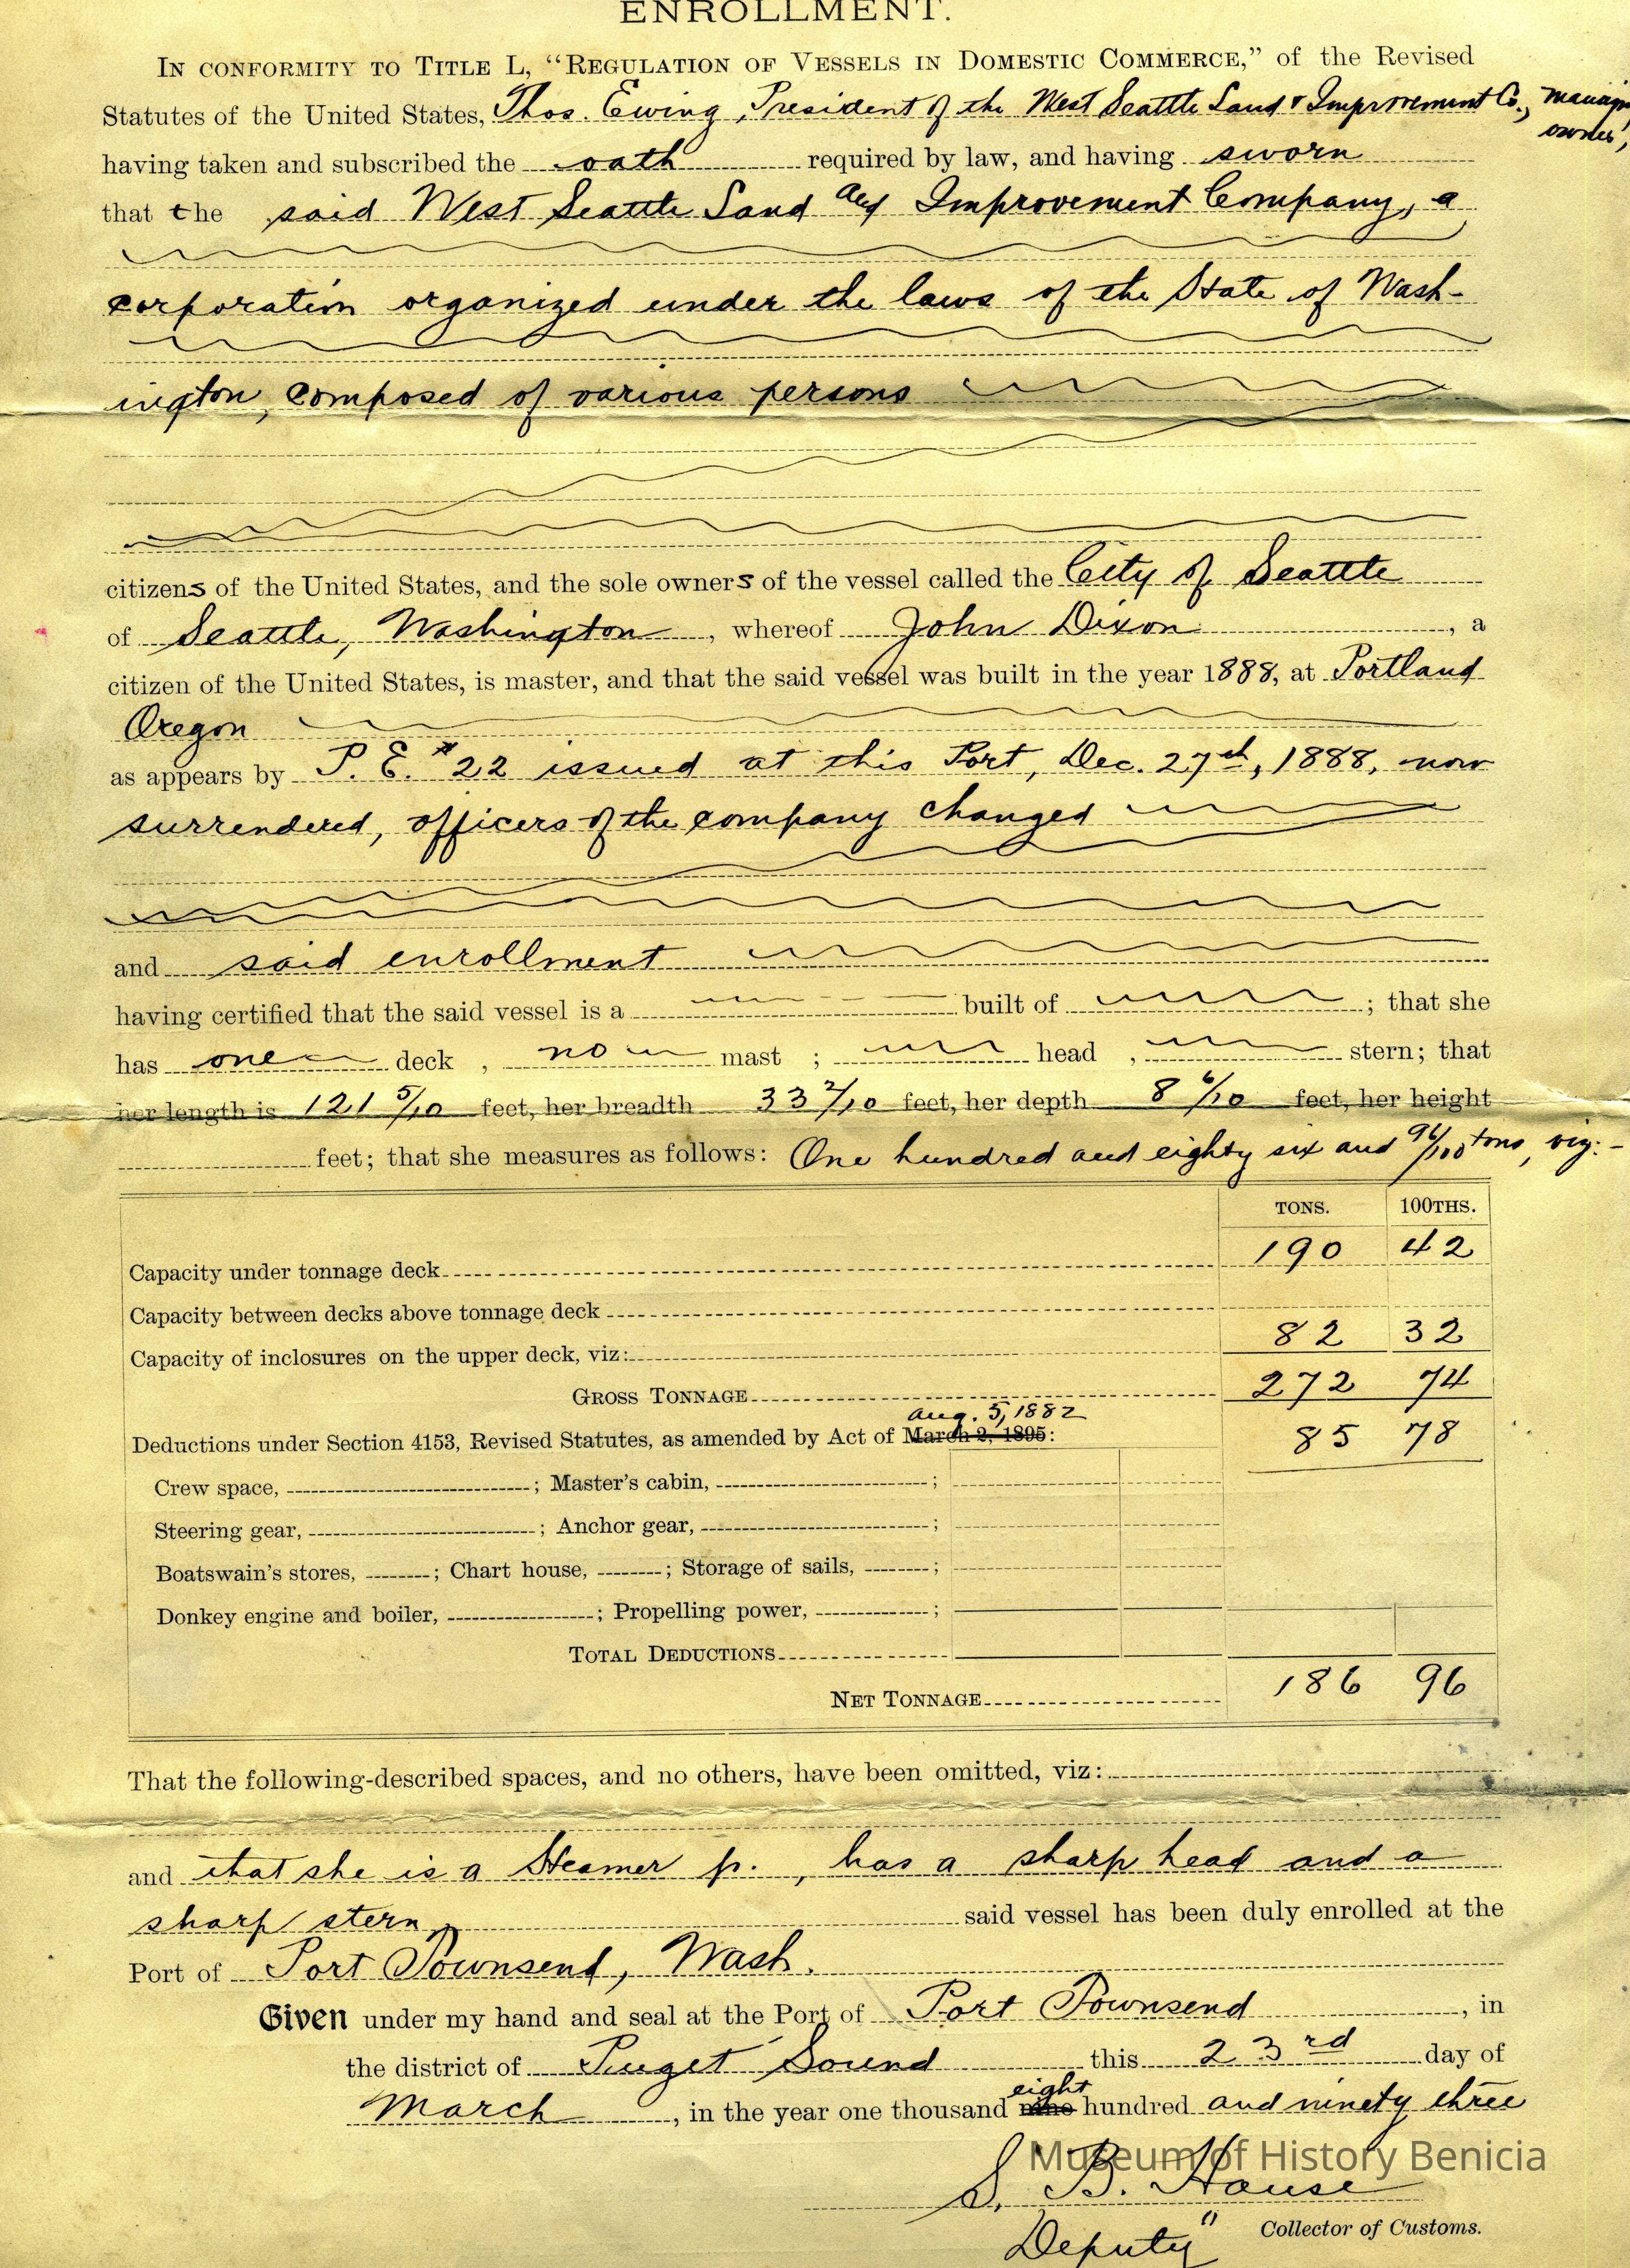 ENROLLMENT.
IN CONFORMITY TO TITLE L, “REGULATION OF VESSELS IN DOMESTIC COMMERCE,” of the Revised
Statutes of the United States, Thos. Ewing, President of the West Seattle Land & Improvement Co., managing
owner,
having taken and subscribed the oath required by law, and having sworn
that the said West Seattle Land and Improvement Company, a
corporation organized under the laws of the State of Wash-
ington, composed of various persons
citizens of the United States, and the sole owners of the vessel called the City of Seattle
of Seattle, Washington, whereof John Dixon, a
citizen of the United States, is master, and that the said vessel was built in the year 1888, at Portland
Oregon
as appears by P. E. #22 issued at this Port, Dec. 27th, 1888, now
surrendered, officers of the company changed
and said enrollment
having certified that the said vessel is a built of ; that she
has one deck , no mast ; head , stern; that
her length is 121 5/10 feet, her breadth 33 2/10 feet, her depth 8 6/10 feet, her height
feet; that she measures as follows: One hundred and eighty six and 96/100 tons, viz:-
TONS. 100THS.
Capacity under tonnage deck 190 42
Capacity between decks above tonnage deck
Capacity of inclosures on the upper deck, viz: 82 32
GROSS TONNAGE 272 74
Aug. 5, 1882
Deductions under Section 4153, Revised Statutes, as amended by Act of March 2, 1895: 85 78
Crew space, ; Master's cabin, ;
Steering gear, ; Anchor gear, ;
Boatswain's stores, ; Chart house, ; Storage of sails, ;
Donkey engine and boiler, ; Propelling power, ;
TOTAL DEDUCTIONS
NET TONNAGE 186 96
That the following-described spaces, and no others, have been omitted, viz:
and that she is a Steamer p., has a sharp head and a
sharp stern, said vessel has been duly enrolled at the
Port of Port Townsend, Wash.
Given under my hand and seal at the Port of Port Townsend, in
the district of Puget Sound this 23rd day of
eight
March, in the year one thousand nine hundred and ninety three
Museum of History Benicia
S. B. House
Deputy " Collector of Customs.